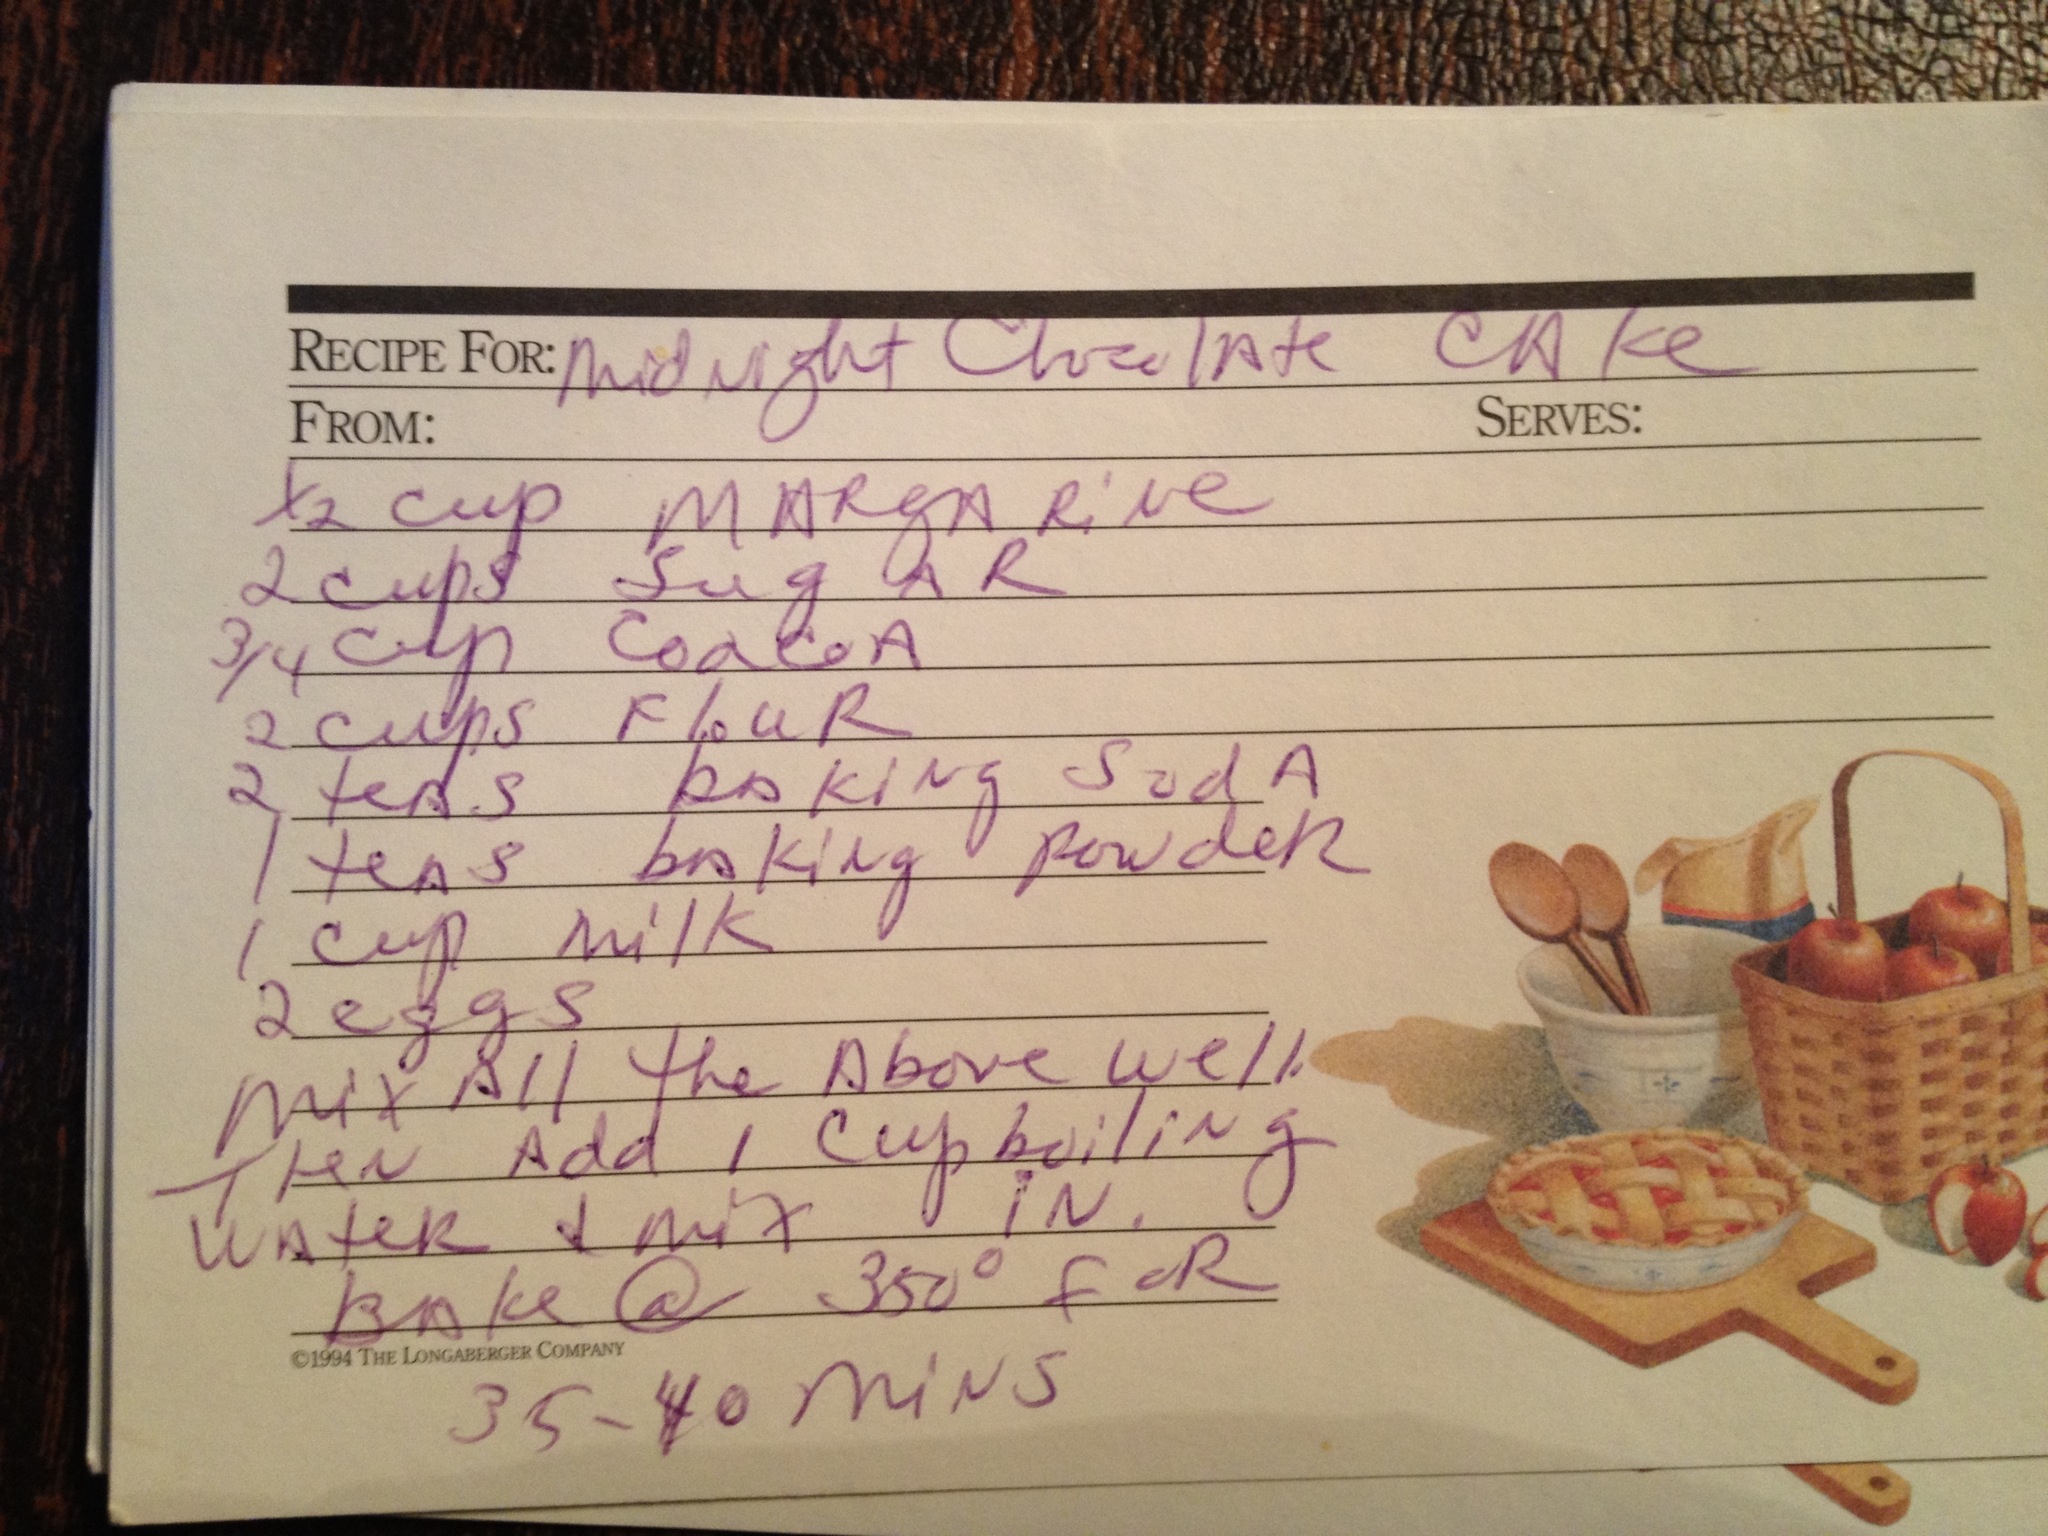 RECIPE FOR: Midnight Chocolate Cake
FROM: SERVES:
1/2 cup Margarine
2 cups Sugar
3/4 cup Coacoa
2 cups Flour
2 teas baking Soda
1 teas baking Powder
1 cup milk
2 eggs
Mix All the Above well.
Then Add 1 cup boiling
water & mix in.
Bake @ 350° for
©1994 THE LONGABERGER COMPANY
35-40 mins